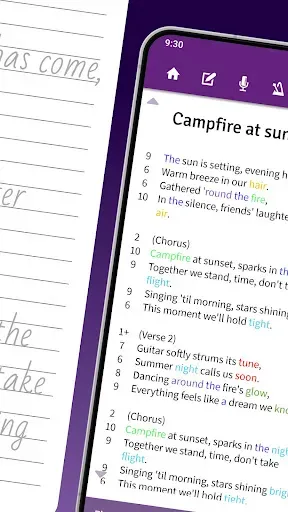 has come,
ter
the
take
ing
9:30
Campfire at sun
9 The sun is setting, evening h
6 Warm breeze in our hair.
6 Gathered 'round the fire,
10 In the silence, friends' laughte
air.
2 (Chorus)
10 Campfire at sunset, sparks in the night
9 Together we stand, time, don't t
flight.
9 Singing 'til morning, stars shini
6 This moment we'll hold tight.
1+ (Verse 2)
7 Guitar softly strums its tune,
6 Summer night calls us soon.
8 Dancing around the fire's glow,
9 Everything feels like a dream we know
2 (Chorus)
10 Campfire at sunset, sparks in the night
9 Together we stand, time, don't take
flight.
9 Singing 'til morning, stars shining brig
6 This moment we'll hold tight.